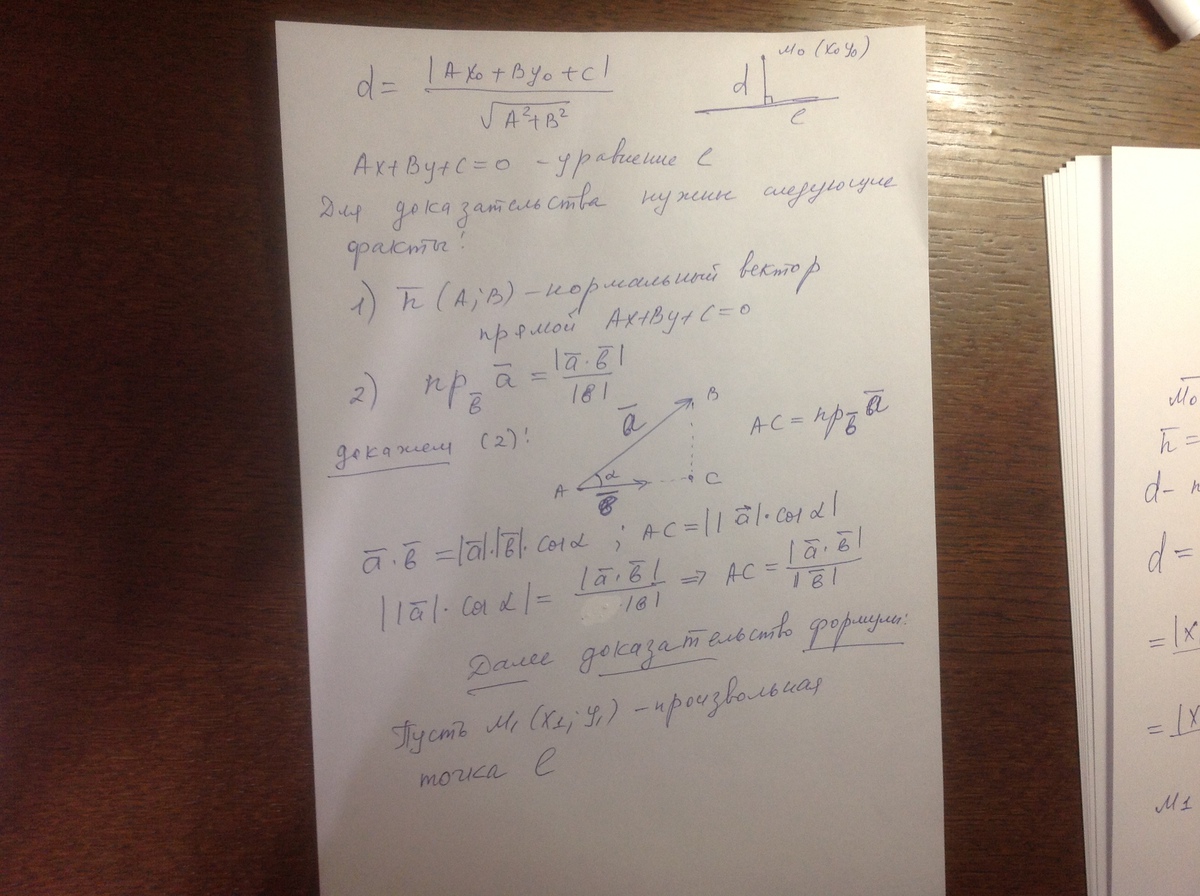 d = |Ax₀ + By₀ + C| / √(A² + B²)
M₀ (x₀ y₀)
d
l
Ax + By + C = 0 – уравнение l
Для доказательства нужны следующие
факты:
1) n̅ (A; B) – нормальный вектор
прямой Ax + By + C = 0
2) пр_b̅ a̅ = |a̅ · b̅| / |b|
докажем (2):
a̅
B
AC = пр_b̅ a̅
A
α
b̅
C
a̅ · b̅ = |a̅| · |b̅| · cos α ; AC = ||a⃗| · cos α|
||a̅| · cos α| = |a̅ · b̅| / |b| ⇒ AC = |a̅ · b̅| / |b̅|
Далее доказательство формулы:
Пусть M₁ (x₁; y₁) – произвольная
точка l
M₀
n̅ =
d –
d =
= |x
= |x
M1